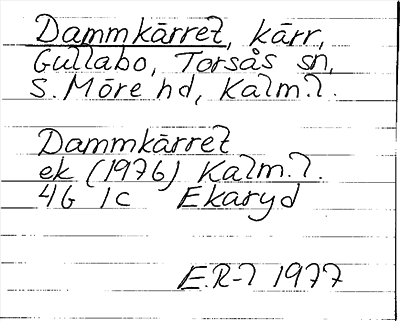 Dammkärret, kärr,
Gullabo, Torsås sn,
S. Möre hd, Kalm. l.
Dammkärret
ek (1976) Kalm. l.
4G 1c Ekaryd
E.R-l 1977